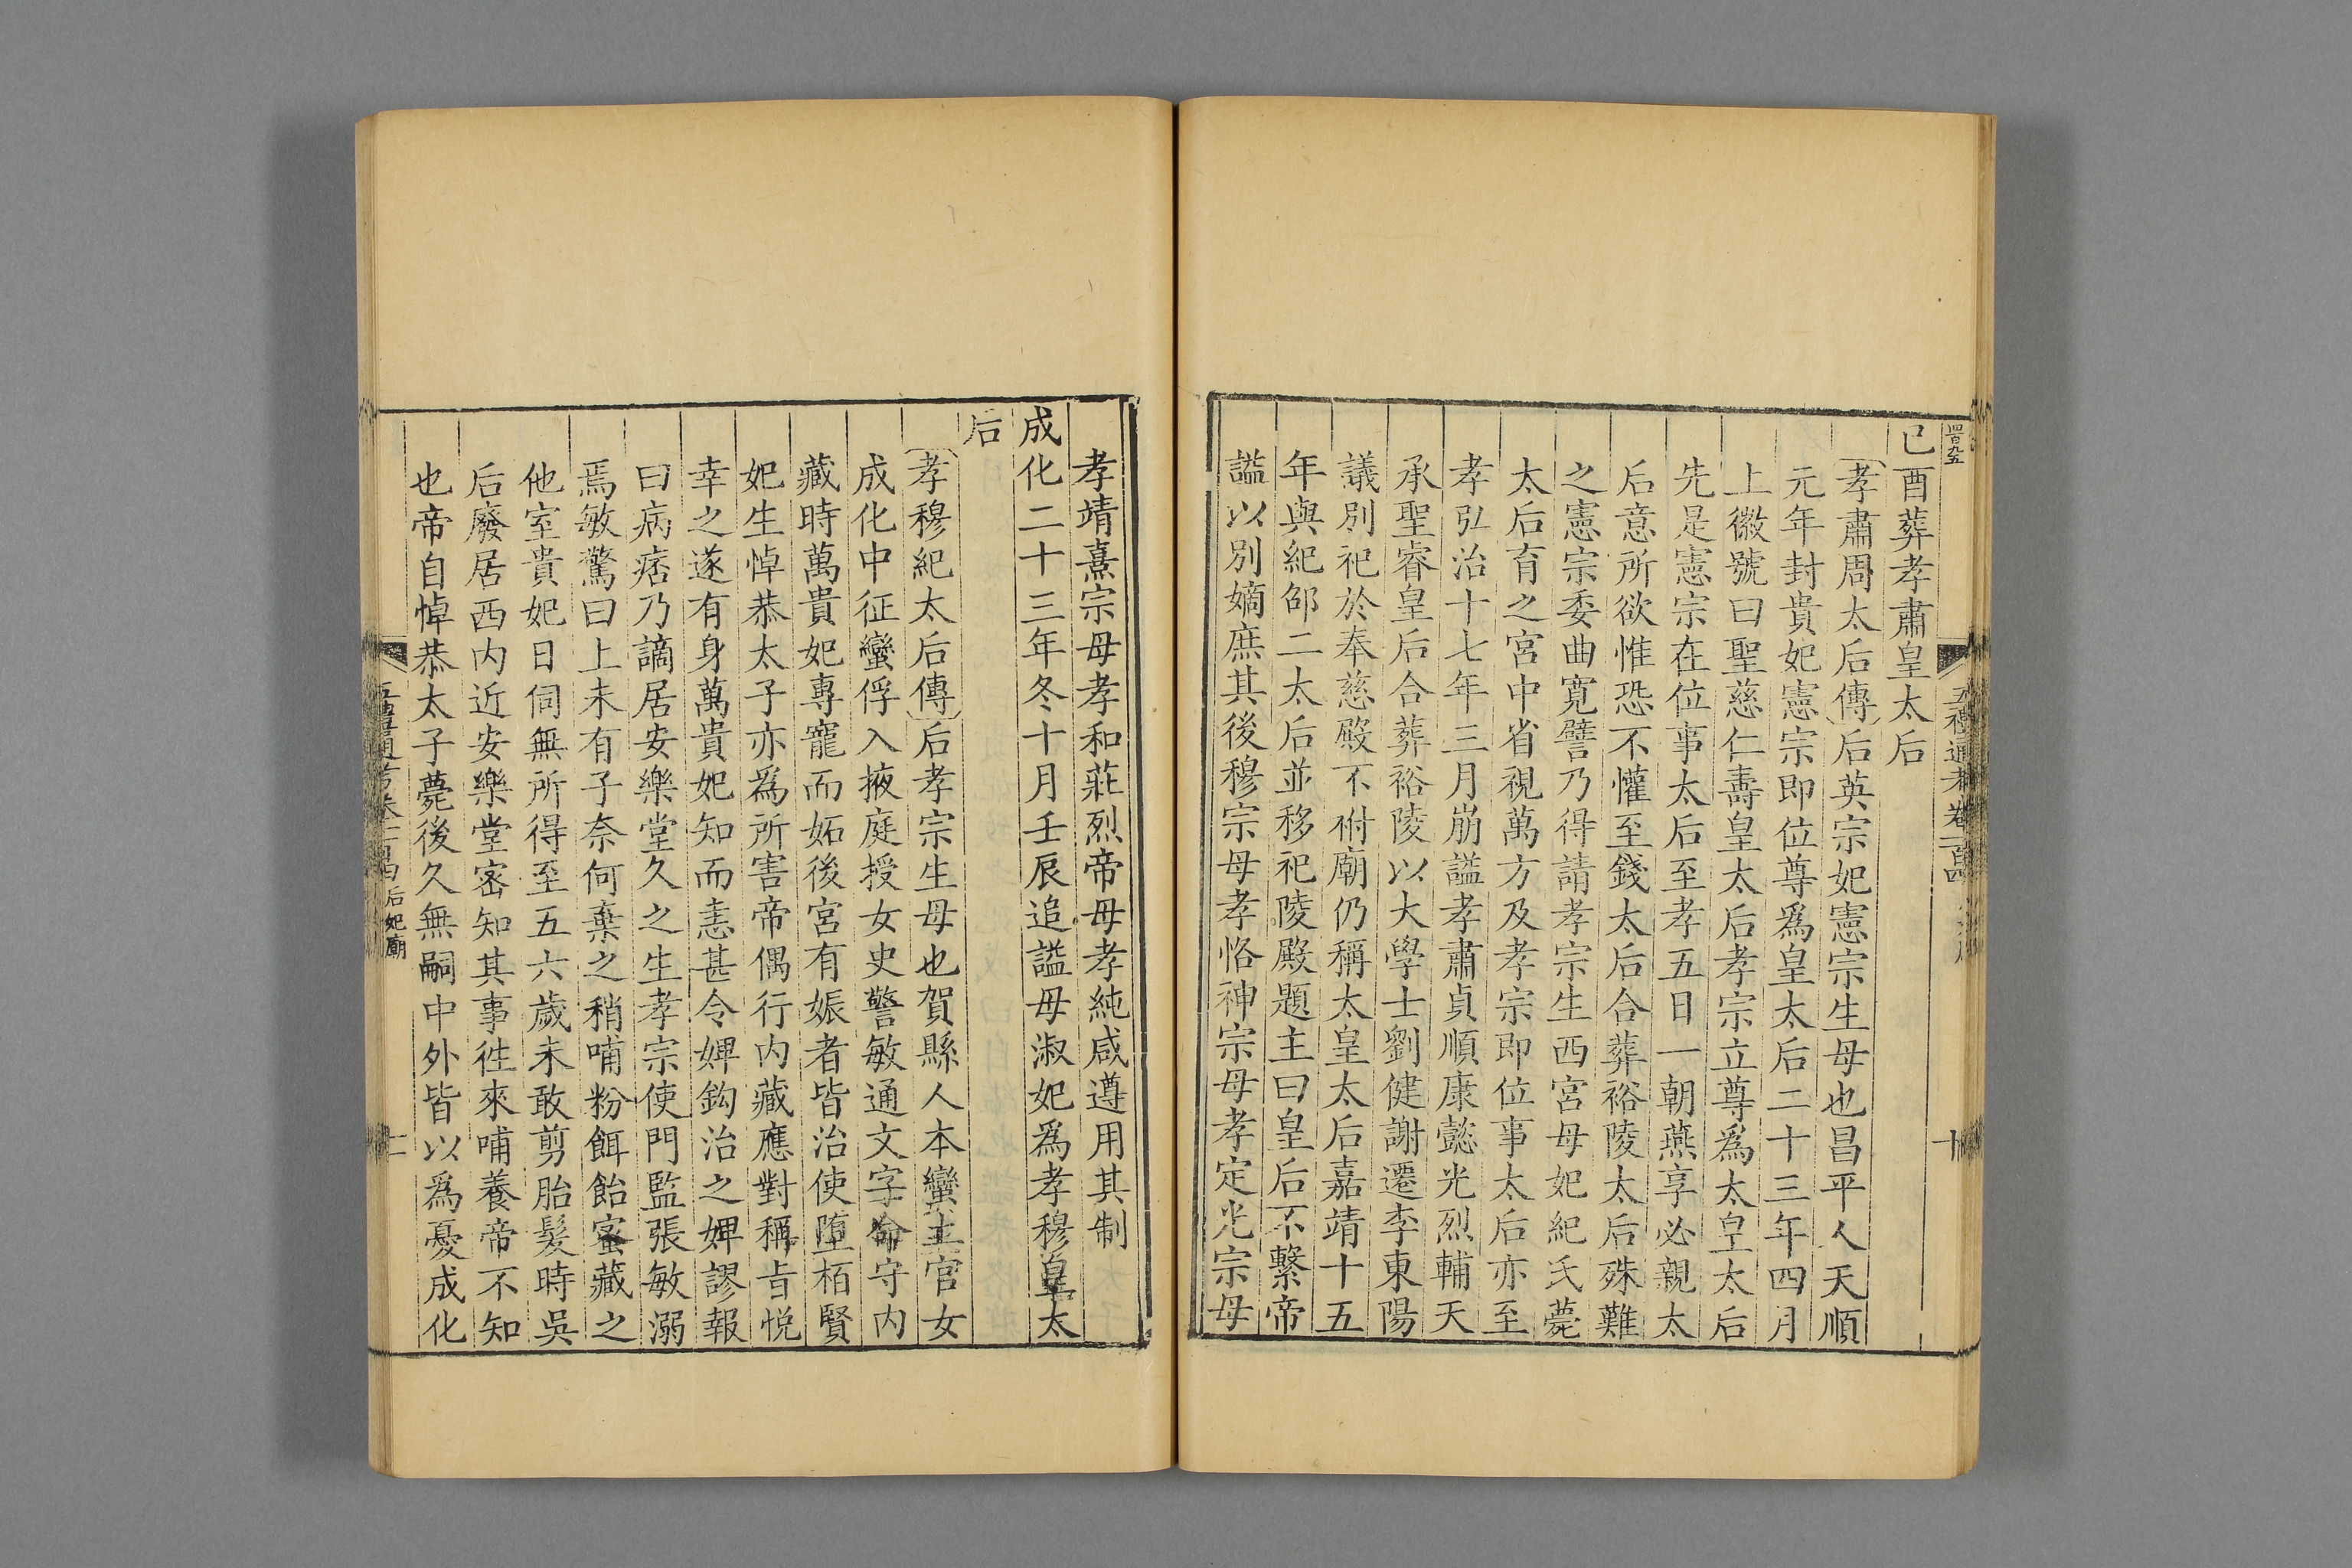 五禮通考卷一百四
十
己酉葬孝肅皇太后
孝肅周太后傳后英宗妃憲宗生母也昌平人天順
元年封貴妃憲宗即位尊爲皇太后二十三年四月
上徽號曰聖慈仁壽皇太后孝宗立尊爲太皇太后
先是憲宗在位事太后至孝五日一朝燕享必親太
后意所欲惟恐不懽至錢太后合葬裕陵太后殊難
之憲宗委曲寬譬乃得請孝宗生西宮母妃紀氏薨
太后育之宮中省視萬方及孝宗即位事太后亦至
孝弘治十七年三月崩謚孝肅貞順康懿光烈輔天
承聖睿皇后合葬裕陵以大學士劉健謝遷李東陽
議別祀於奉慈殿不祔廟仍稱太皇太后嘉靖十五
年與紀邵二太后並移祀陵殿題主曰皇后不繫帝
謚以別嫡庶其後穆宗母孝恪神宗母孝定光宗母
孝靖熹宗母孝和莊烈帝母孝純咸遵用其制
成化二十三年冬十月壬辰追謚母淑妃爲孝穆皇太
后
孝穆紀太后傳后孝宗生母也賀縣人本蠻土官女
成化中征蠻俘入掖庭授女史警敏通文字命守內
藏時萬貴妃專寵而妬後宮有娠者皆治使墮栢賢
妃生悼恭太子亦爲所害帝偶行内藏應對稱旨悅
幸之遂有身萬貴妃知而恚甚令婢鈎治之婢謬報
曰病痞乃謫居安樂堂久之生孝宗使門監張敏溺
焉敏驚曰上未有子奈何棄之稍哺粉餌飴蜜藏之
他室貴妃日伺無所得至五六歲未敢剪胎髮時吳
后廢居西内近安樂堂密知其事徃來哺養帝不知
也帝自悼恭太子薨後久無嗣中外皆以爲憂成化
后妃廟